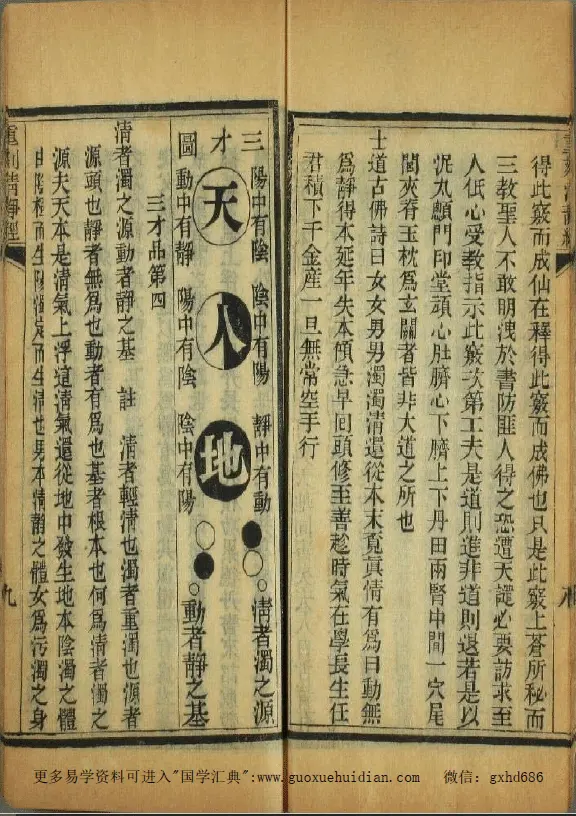 得此竅而成仙在釋得此竅而成佛也只是此竅上蒼所秘而
三教聖人不敢明洩於書防匪人得之恐遭天譴必要訪求至
人低心受教指示此竅次第工夫是道則進非道則退若是以
泥丸顖門印堂頭心肚臍心下臍上下丹田兩腎中間一穴尾
閭夾脊玉枕爲玄關者皆非大道之所也
士道古佛詩曰女女男男濁濁清還從本末覓真情有爲曰動無
爲靜得本延年失本傾急早回頭修至善趁時氣在學長生任
君積下千金產一旦無常空手行
三才圖
陽中有陰 陰中有陽 靜中有動 清者濁之源
天人地
動中有靜 陽中有陰 陰中有陽 動者靜之基
三才品第四
清者濁之源動者靜之基 註 清者輕清也濁者重濁也源者
源頭也靜者無爲也動者有爲也基者根本也何爲清者濁之
源夫天本是清氣上浮這清氣還從地中發生地本陰濁之體
由陰極而生陽濁定而生清也男本清靜之體女爲污濁之身
重刻清靜經
九
更多易学资料可进入"国学汇典":www.guoxuehuidian.com 微信：gxhd686